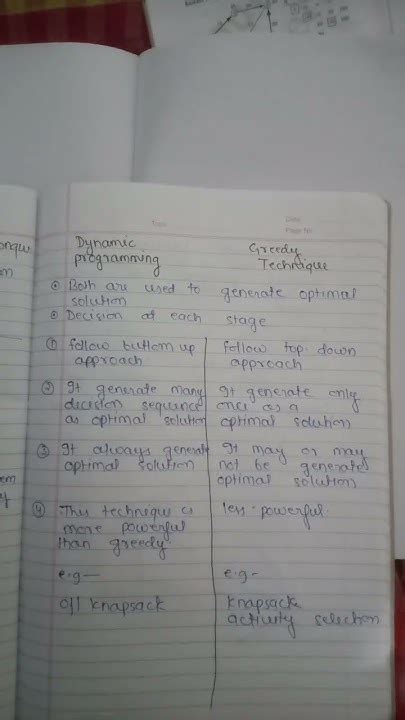 Topic
Date
Page No
Dynamic
programming
Greedy
Technique
Both are used to generate optimal
solution
Decision at each stage
① follow buttom up
approach
follow top down
approach
② It generate many
decision sequence
as optimal solution
It generate only
once as a
optimal solution
③ It always generate
optimal solution
It may or may
not be generate
optimal solution
④ This technique is
more powerful
than greedy.
less powerful.
e.g—
0/1 knapsack
e.g-
knapsack
activity selection